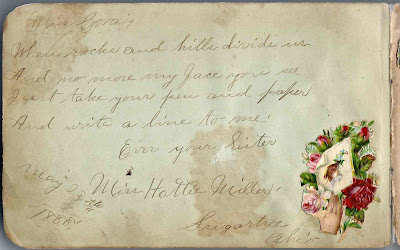 Miss
When rocks and hills divide us
And no more my face you see
Just take your pen and paper
And write a line to me.
Ever your Sister
Miss Hattie Miller.
May 25th
1888
Sugartree
Ohio